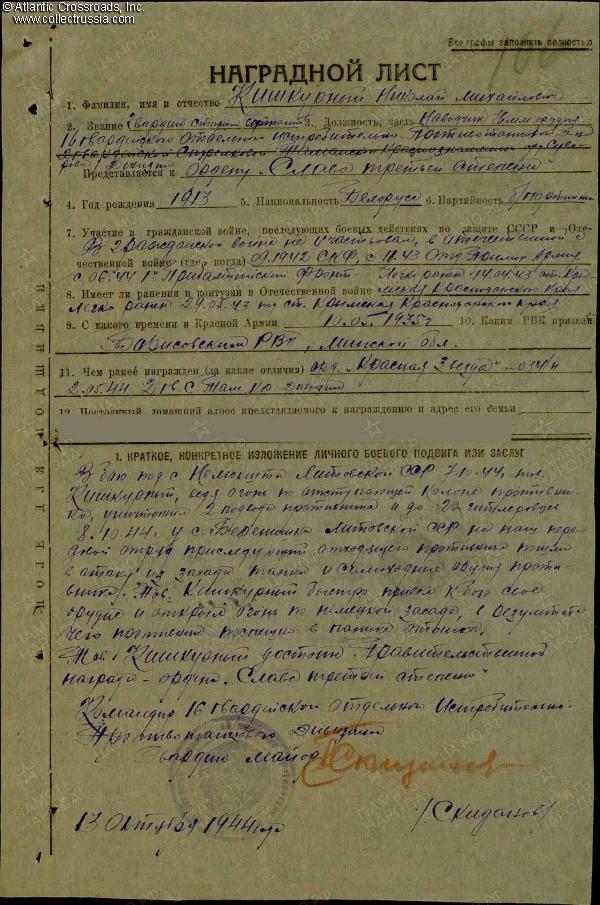 © Atlantic Crossroads, Inc.
www.collectrussia.com
Все графы заполнять полностью
НАГРАДНОЙ ЛИСТ
1. Фамилия, имя и отчество Кишкурный Николай Михайлович
2. Звание Гвардии старший сержант 3. Должность, часть Наводчик орудия
16 гвардейского отдельного истребительно-противотанкового
Представляется к ордену „Слава третьей степени"
4. Год рождения 1913 5. Национальность Белорус 6. Партийность б/партийный
7. Участие в гражданской войне, последующих боевых действиях по защите СССР и Оте-
чественной войне (где, когда) В гражданской войне не участвовал, в отечественной с
09.1942 СКФ, с 11.43 Отд. Примор. Армия,
с 06.44 1й Прибалтийский Фронт.
8. Имеет ли ранения и контузии в Отечественной войне Легко ранен 14.04.43 ст. Крымская Краснодарского Края
Легко ранен 29.05.43 под ст. Крымская Краснодарского Края
9. С какого времени в Красной Армии 10.05.1935г 10. Каким РВК призван
Борисовским РВК, Минской обл.
11. Чем ранее награжден (за какие отличия) орд. „Красная Звезда"
2.05.44 2 гв. С. Там. Кр. дивизии
12. Постоянный домашний адрес представляемого к награждению и адрес его семьи
ПОЛЕ ДЛЯ ПОДШИВКИ
I. КРАТКОЕ, КОНКРЕТНОЕ ИЗЛОЖЕНИЕ ЛИЧНОГО БОЕВОГО ПОДВИГА ИЛИ ЗАСЛУГ
В бою под с. Литовской ССР 7.10.44, тов.
Кишкурный, ведя огонь по отступающей колоне противни-
ка, уничтожил 2 повода противника и до 20 гитлеровцев
8.10.44 у с. Литовской ССР на наш пере-
довой отряд приследующий отходящего противника пошли
в атаку из засады танки и самоходные орудия проти-
вника. Тов. Кишкурный быстро привел к бою свое
орудие и открыл огонь по немецкой засаде, в результате
чего противник поспешно в панике отошол.
Тов. Кишкурный достоин Правительственной
награды - ордена „Слава третьей степени"
Командир 16 гвардейского отдельного Истребительно-
Противотанкового дивизиона
Гвардии майор Скиданов
/Скиданов/
13 октября 1944 года